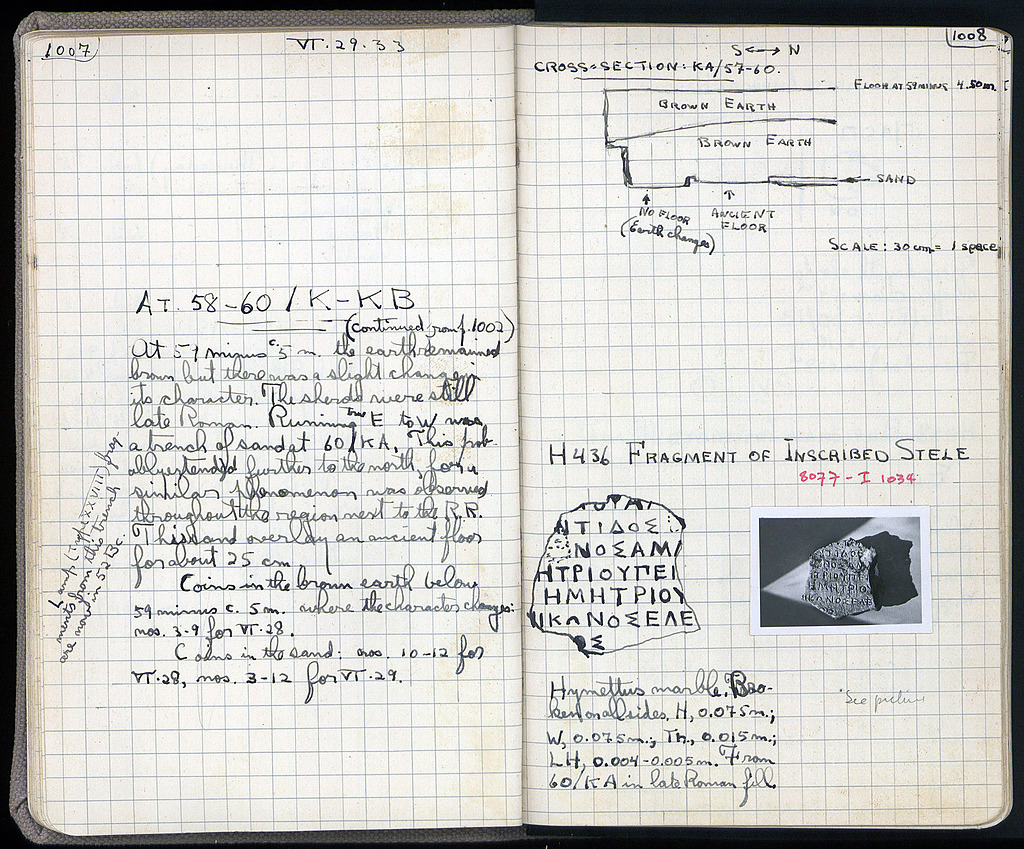 1007
VI.29.33
AT. 58-60 / K-KB
(continued from p. 1002)
At 59 minus c. 5 m. the earth remained
brown but there was a slight change in
its character. The sherds were still
late Roman. Running from E to W was
a trench of sand at 60/KA. This prob-
ably extended further to the north, for a
similar phenomenon was observed
throughout the region next to the R.R.
This sand overlay an ancient floor
for about 25 cm
Coins in the brown earth below
59 minus c. 5m. where the character changes:
nos. 3-9 for VI.28.
Coins in the sand: nos. 10-12 for
VI.28, nos. 3-12 for VI.29.
Lamp (type XXVIII) frag-
ments from this trench
are now in 52 BC.
1008
S ↔ N
CROSS-SECTION: KA/57-60.
FLOOR AT 59 MINUS 4.50 m.
BROWN EARTH
BROWN EARTH
SAND
NO FLOOR
(Earth changes)
ANCIENT
FLOOR
SCALE: 30 cm = 1 space
H 436 FRAGMENT OF INSCRIBED STELE
8077 - I 1034
ΝΤΙΔΟΣ
ΝΟΣΑΜ
ΗΤΡΙΟΥΠΕΙ
ΗΜΗΤΡΙΟΥ
ΙΚΩΝΟΣΕΛΕ
ΟΣ
Hymettus marble. Bro-
ken on all sides. H, 0.075m.;
W, 0.075m.; Th., 0.015m.;
LH, 0.004-0.005m. From
60/KA in late Roman fill.
See picture